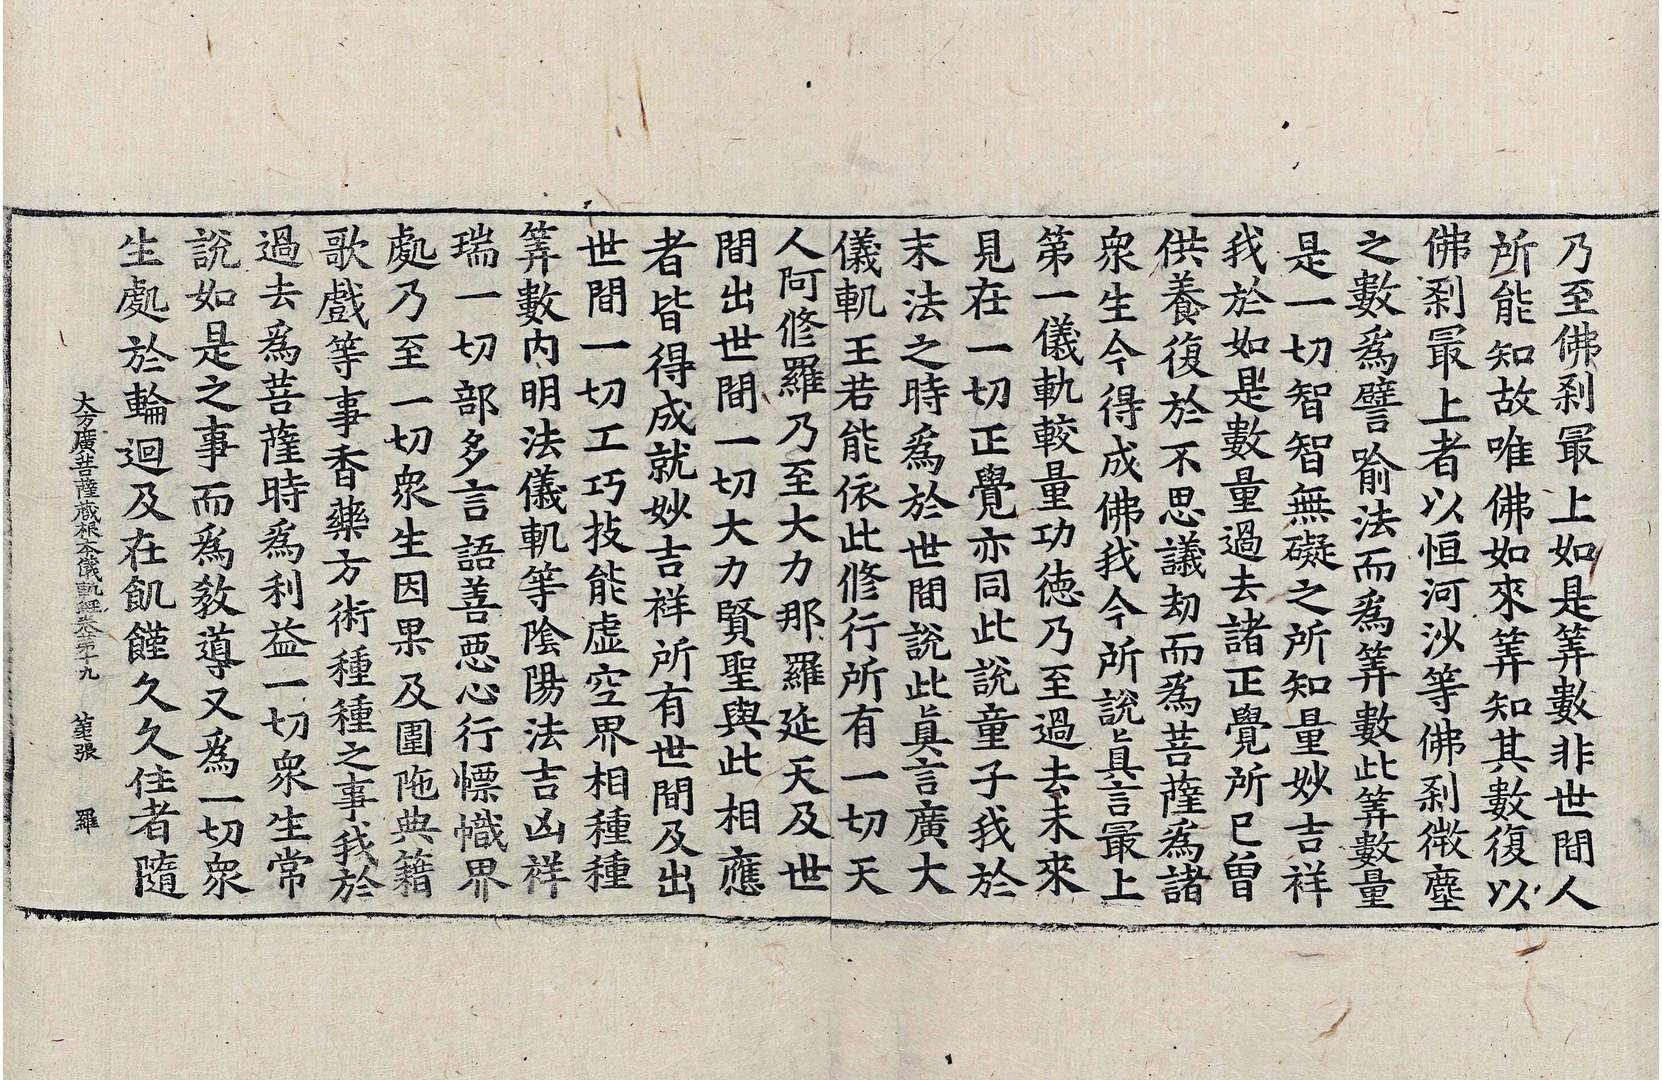 乃至佛剎最上如是筭數非世間人
所能知故唯佛如來筭知其數復以
佛剎最上者以恒河沙等佛剎微塵
之數爲譬喻法而爲筭數此筭數量
是一切智智無礙之所知量妙吉祥
我於如是數量過去諸正覺所已曾
供養復於不思議劫而爲菩薩爲諸
衆生今得成佛我今所說眞言最上
第一儀軌較量功德乃至過去未來
見在一切正覺亦同此說童子我於
末法之時爲於世間說此眞言廣大
儀軌王若能依此修行所有一切天
人阿修羅乃至大力那羅延天及世
間出世間一切大力賢聖與此相應
者皆得成就妙吉祥所有世間及出
世間一切工巧技能虛空界相種種
筭數內明法儀軌等陰陽法吉凶祥
瑞一切部多言語善惡心行慓幟界
處乃至一切衆生因果及圍陁典籍
歌戲等事香藥方術種種之事我於
過去爲菩薩時爲利益一切衆生常
說如是之事而爲敎導又爲一切衆
生處於輪迴及在飢饉久久住者隨
大方廣菩薩藏根本儀軌經卷 第十九 張 羅